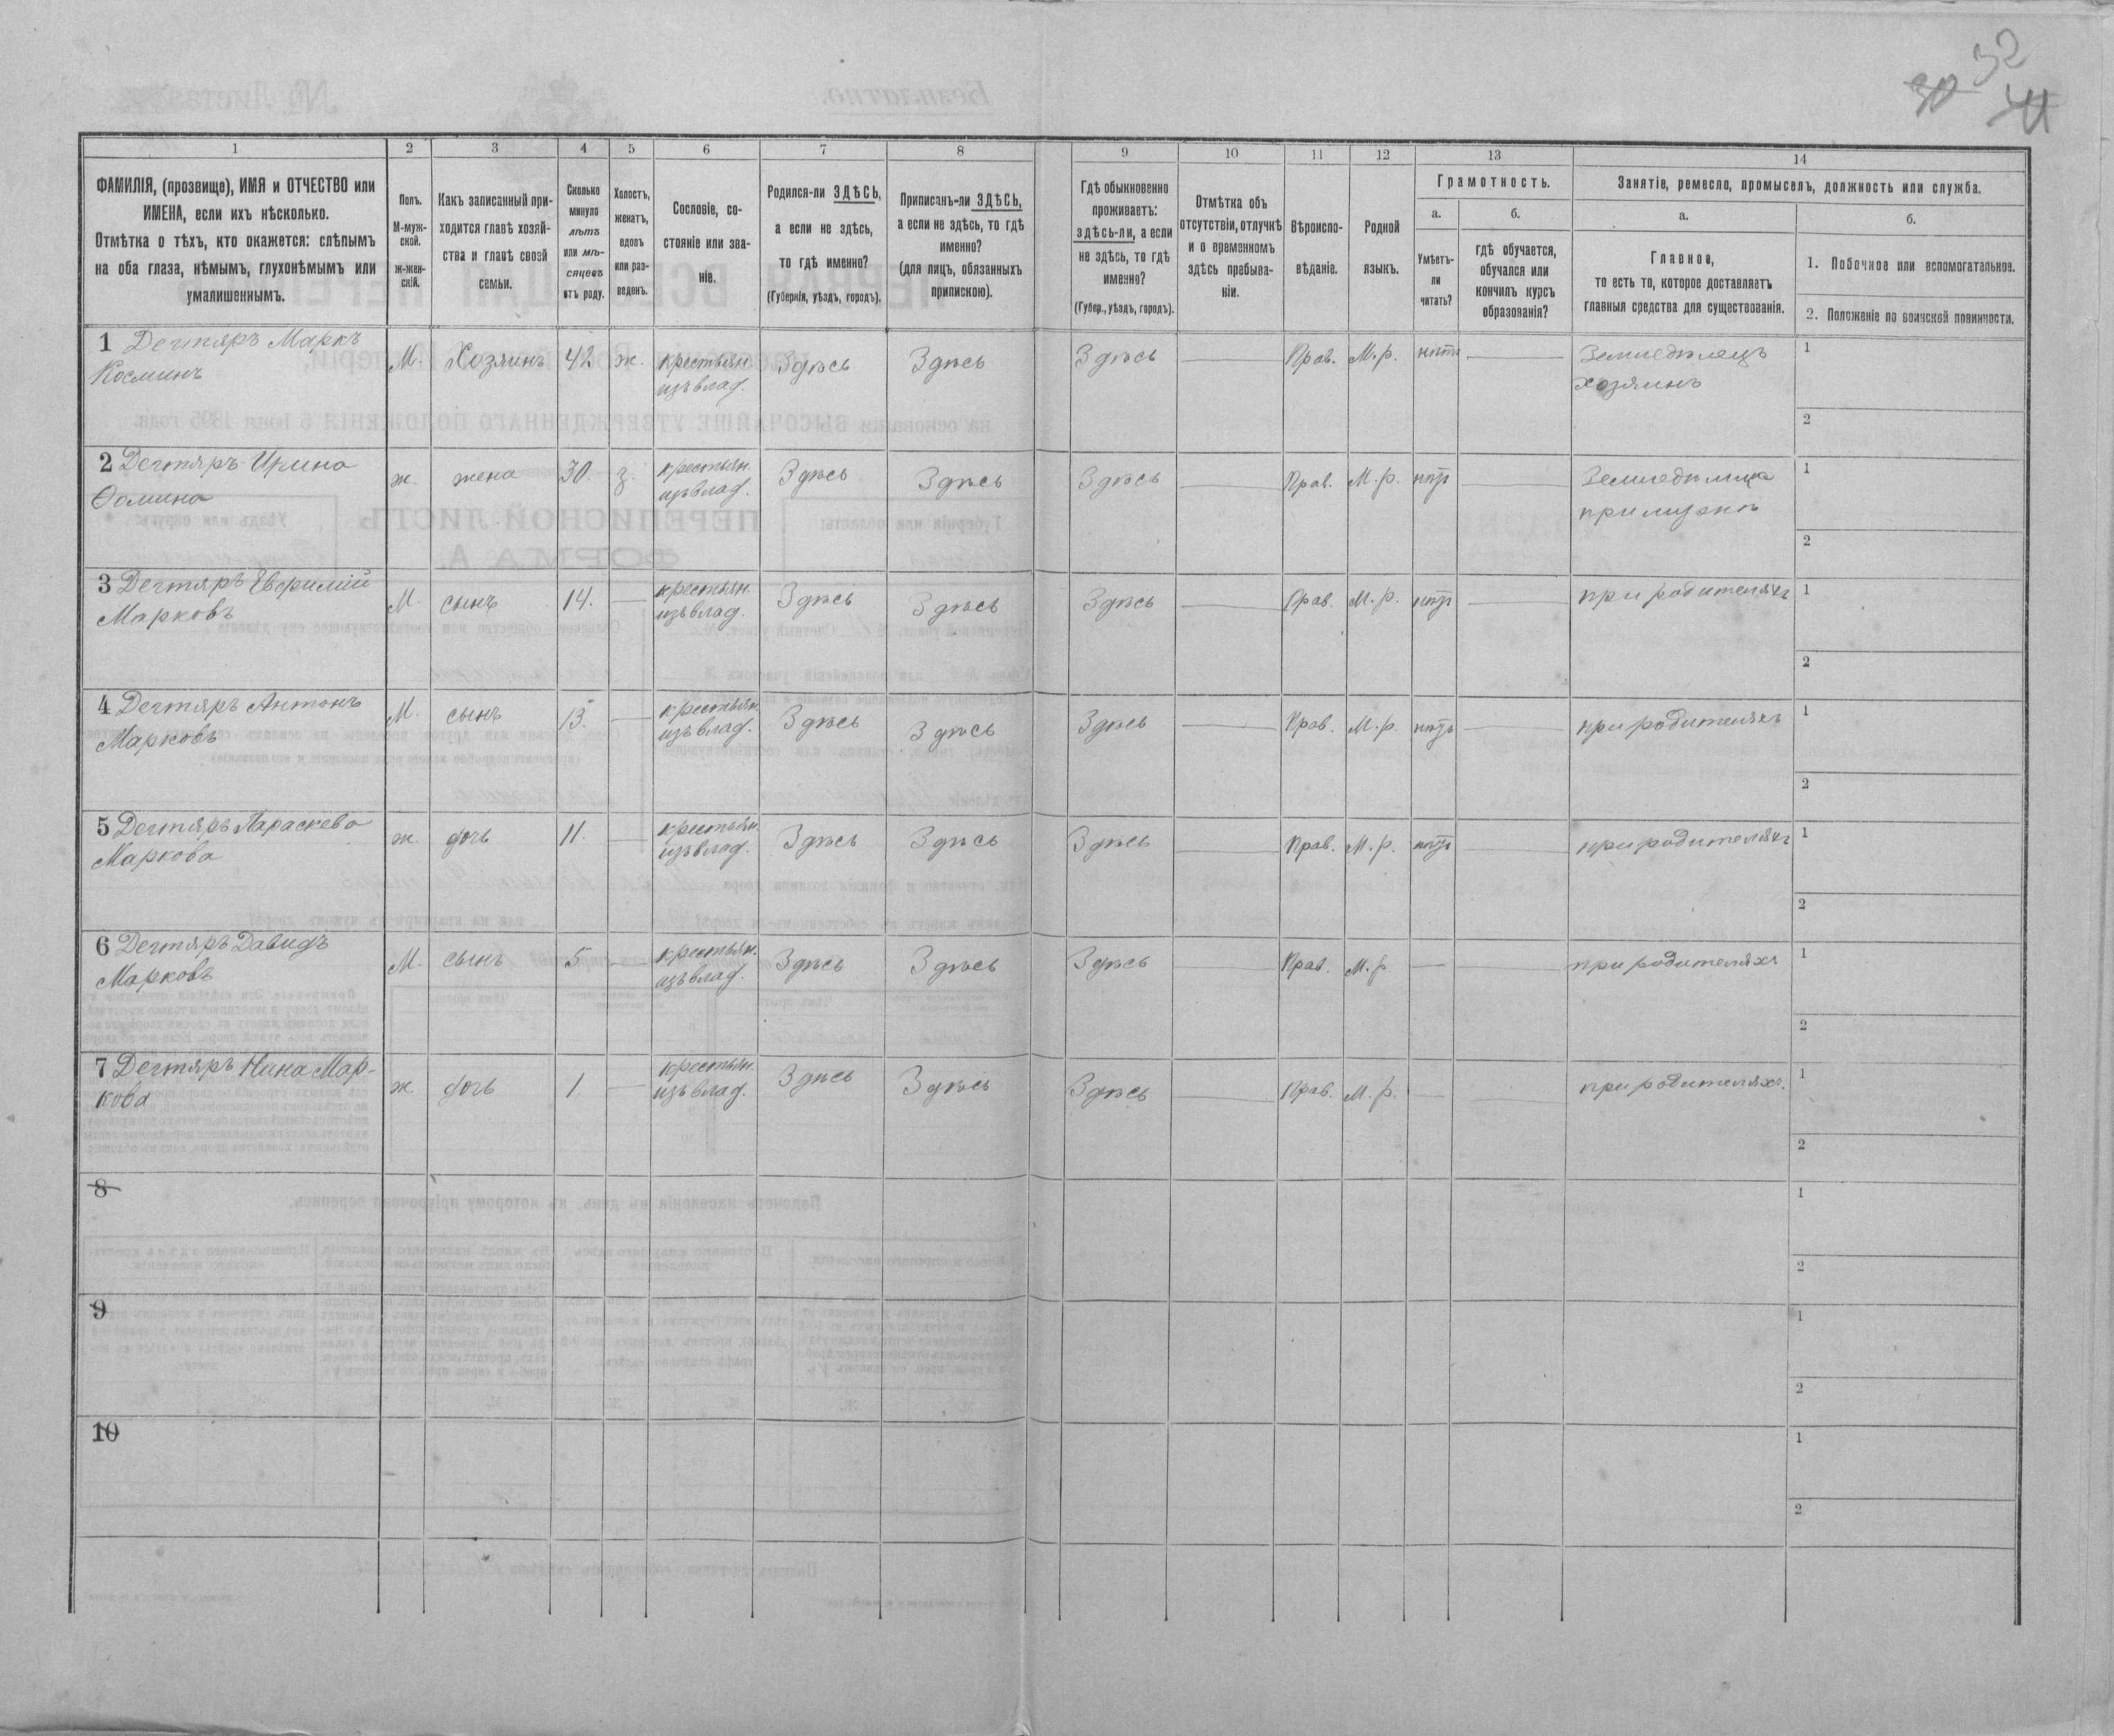 32
30
1 2 3 4 5 6 7 8 9 10 11 12 13 14
ФАМИЛІЯ, (прозвище), ИМЯ и ОТЧЕСТВО или
ИМЕНА, если ихъ нѣсколько.
Отмѣтка о тѣхъ, кто окажется: слѣпымъ
на оба глаза, нѣмымъ, глухонѣмымъ или
умалишеннымъ.
Полъ.
М-муж-
ской.
ж-жен-
скій.
Какъ записанный при-
ходится главѣ хозяй-
ства и главѣ своей
семьи.
Сколько
минуло
лѣтъ
или мѣ-
сяцевъ
отъ роду.
Холостъ,
женатъ,
вдовъ
или раз-
веденъ.
Сословіе, со-
стояніе или зва-
ніе.
Родился-ли ЗДѢСЬ,
а если не здѣсь,
то гдѣ именно?
(Губернія, уѣздъ, городъ).
Приписанъ-ли ЗДѢСЬ,
а если не здѣсь, то гдѣ
именно?
(для лицъ, обязанныхъ
припискою).
Гдѣ обыкновенно
проживаетъ:
здѣсь-ли, а если
не здѣсь, то гдѣ
именно?
(Губер., уѣздъ, городъ).
Отмѣтка объ
отсутствіи, отлучкѣ
и о временномъ
здѣсь пребыва-
ніи.
Вѣроиспо-
вѣданіе.
Родной
языкъ.
Грамотность.
а.
Умѣетъ-
ли
читать?
б.
гдѣ обучается,
обучался или
кончилъ курсъ
образованія?
Занятіе, ремесло, промыселъ, должность или служба.
а.
Главное,
то есть то, которое доставляетъ
главныя средства для существованія.
б.
1. Побочное или вспомогательное.
2. Положеніе по воинской повинности.
1 Дегтяръ Маркъ М. Хозяинъ 42 ж. крестьян. Здѣсь Здѣсь Здѣсь — Прав. М.р. нѣтъ — Земледѣлецъ 1
Косминъ изъ влад. хозяинъ
2
2 Дегтяръ Ирина ж. жена 30. з. крестьян. Здѣсь Здѣсь Здѣсь — Прав. М.р. нѣтъ — Земледѣлица 1
Ѳомина изъ влад. при мужѣ
2
3 Дегтяръ Евфимій М. сынъ 14. — крестьян. Здѣсь Здѣсь Здѣсь — Прав. М.р. нѣтъ — при родителяхъ 1
Марковъ изъ влад.
2
4 Дегтяръ Антонъ М. сынъ 13. — крестьян. Здѣсь Здѣсь Здѣсь — Прав. М.р. нѣтъ — при родителяхъ 1
Марковъ изъ влад.
2
5 Дегтяръ Параскева ж. дочь 11. — крестьян. Здѣсь Здѣсь Здѣсь — Прав. М.р. нѣтъ — при родителяхъ 1
Маркова изъ влад.
2
6 Дегтяръ Давидъ М. сынъ 5 — крестьян. Здѣсь Здѣсь Здѣсь — Прав. М.р. — — при родителяхъ 1
Марковъ изъ влад.
2
7 Дегтяръ Нина Мар- ж дочь 1. — крестьян. Здѣсь Здѣсь Здѣсь — Прав. М.р. — — при родителяхъ. 1
кова изъ влад.
2
8 1
2
9 1
2
10 1
2